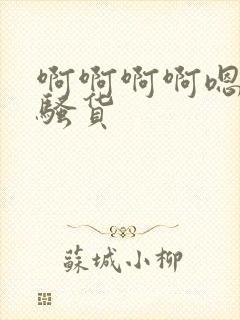 啊啊啊啊嗯
骚货
蘇城小柳